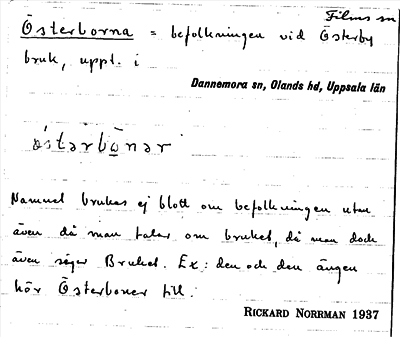 Films sn
Österborna = befolkningen vid Österby
bruk, uppt. i
Dannemora sn, Olands hd, Uppsala län
östərbōnər
Namnet brukas ej blott om befolkningen utan
även då man talar om bruket, då man dock
även säger Bruket. Ex: den och den ängen
hör Österboner till.
RICKARD NORRMAN 1937